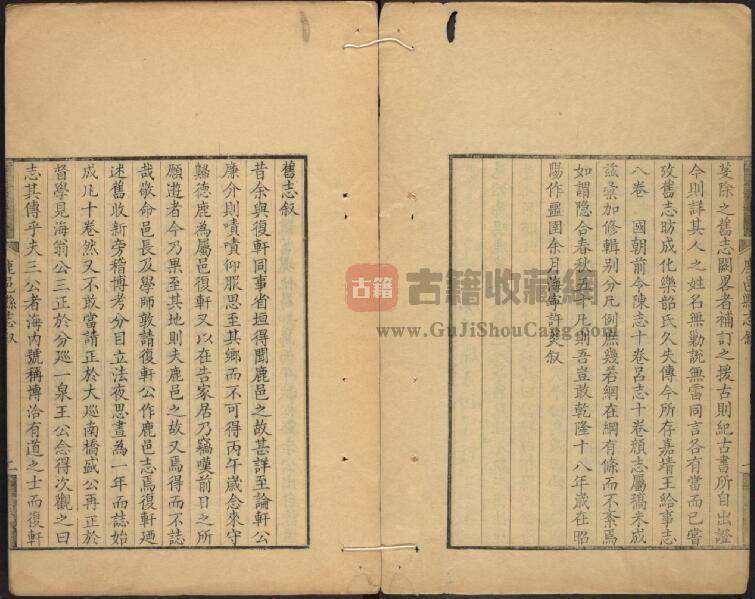 芟除之舊志闕畧者補訂之援古則紀古書所自出證
今則詳其人之姓名無勦說無雷同言各有當而已嘗
攷舊志昉成化樂韶氏久失傳今所存嘉靖王給事志
八卷 國朝前令陳志十卷呂志十卷頹志屬稿未成
茲彙加修輯別分凡例庶幾若網在綱有條而不紊焉
如謂隐合春秋五十凡則吾豈敢乾隆十八年歲在昭
陽作噩圉余月海寧許菼叙
鹿邑縣志叙
舊志叙
昔余與復軒同事省垣得聞鹿邑之故甚詳至論軒公
廉介則嘖嘖仰服思至其鄉而不可得丙午歲念來守
歸德鹿為屬邑復軒又以在告家居乃竊嘆前日之所
願遊者今乃果至其地則夫鹿邑之故又焉得而不誌
哉檄命邑長及學師敦請復軒公作鹿邑志焉復軒廼
述舊收新旁稽博考分目立法夜思晝為一年而誌始
成凡十卷然又不敢當請正於大廵南橋盛公再正於
督學見海翁公三正於分廵一泉王公念得次觀之曰
志其傳乎夫三公者海內號稱博洽有道之士而復軒
鹿邑縣志叙
二
古籍
古籍收藏網
www.GuJiShouCang.com